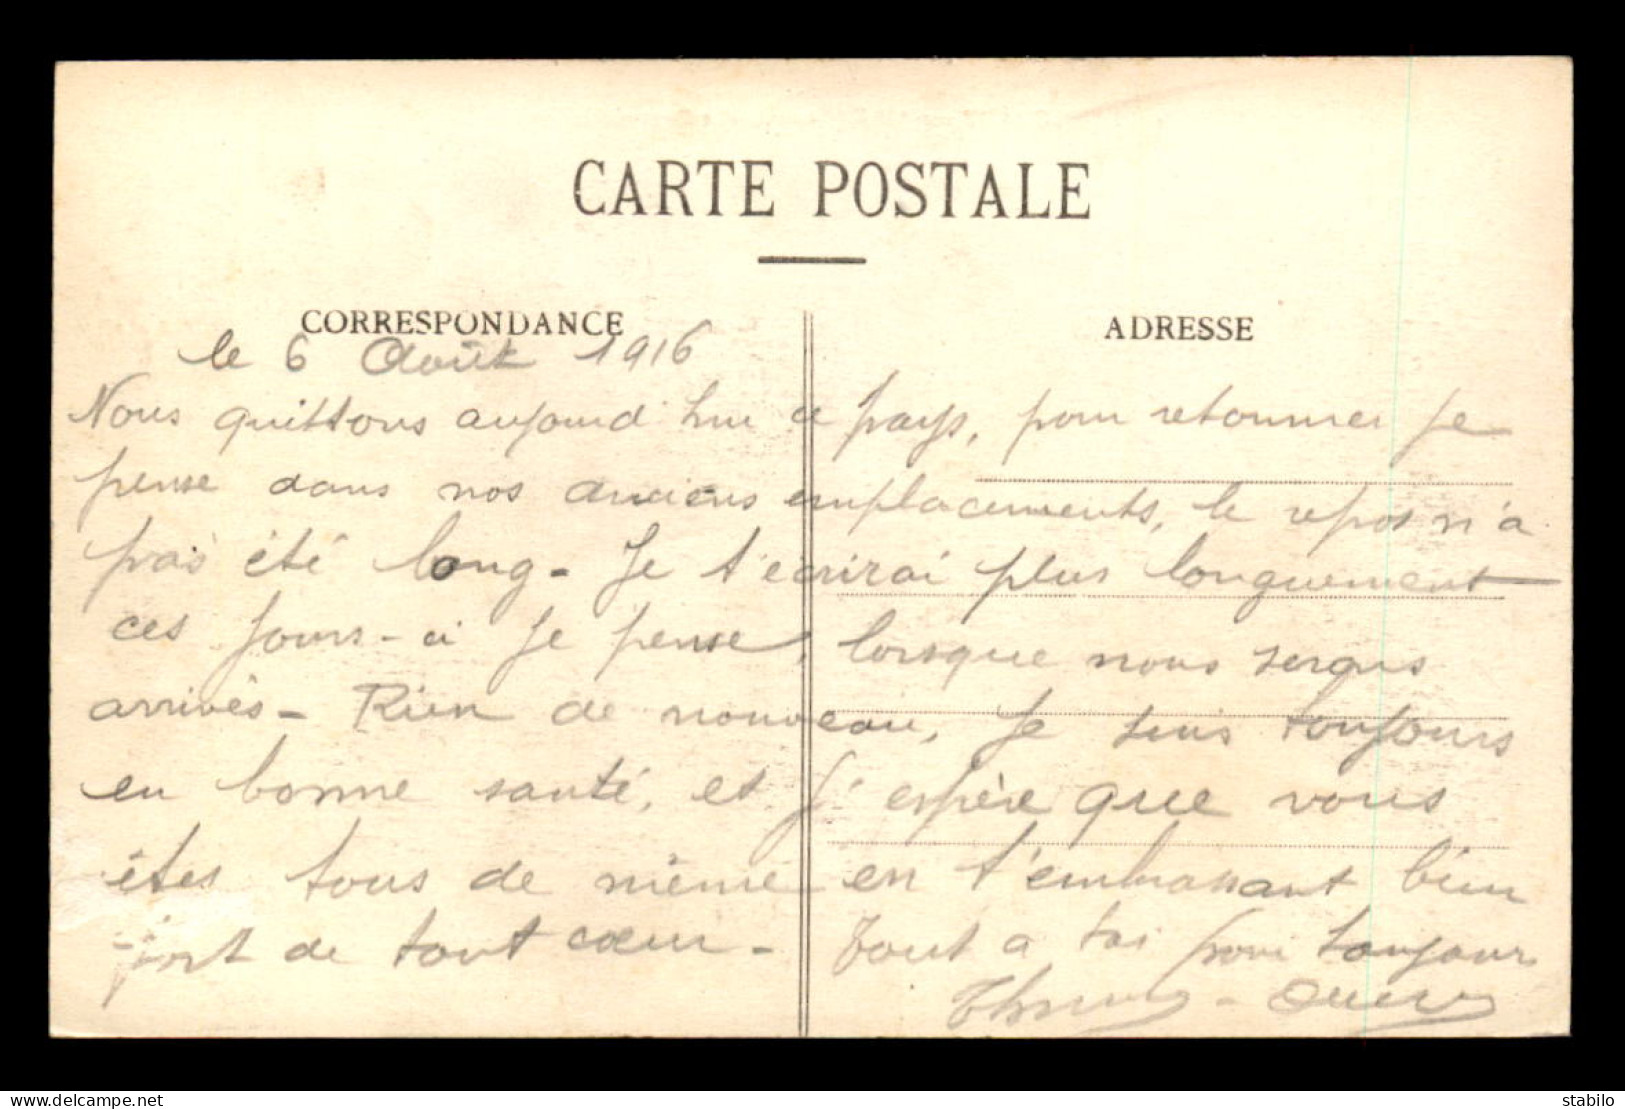 CARTE POSTALE
CORRESPONDANCE
ADRESSE
le 6 Août 1916
Nous quittons aujourd'hui ce pays, pour retourner je
pense dans nos anciens emplacements, le repos n'a
pas été long - Je t'écrirai plus longuement
ces jours-ci je pense, lorsque nous serons
arrivés - Rien de nouveau, je suis toujours
en bonne santé, et j'espère que vous
êtes tous de même en t'embrassant bien
fort de tout cœur - Tout a toi pour toujours
delcampe.net
stabilo